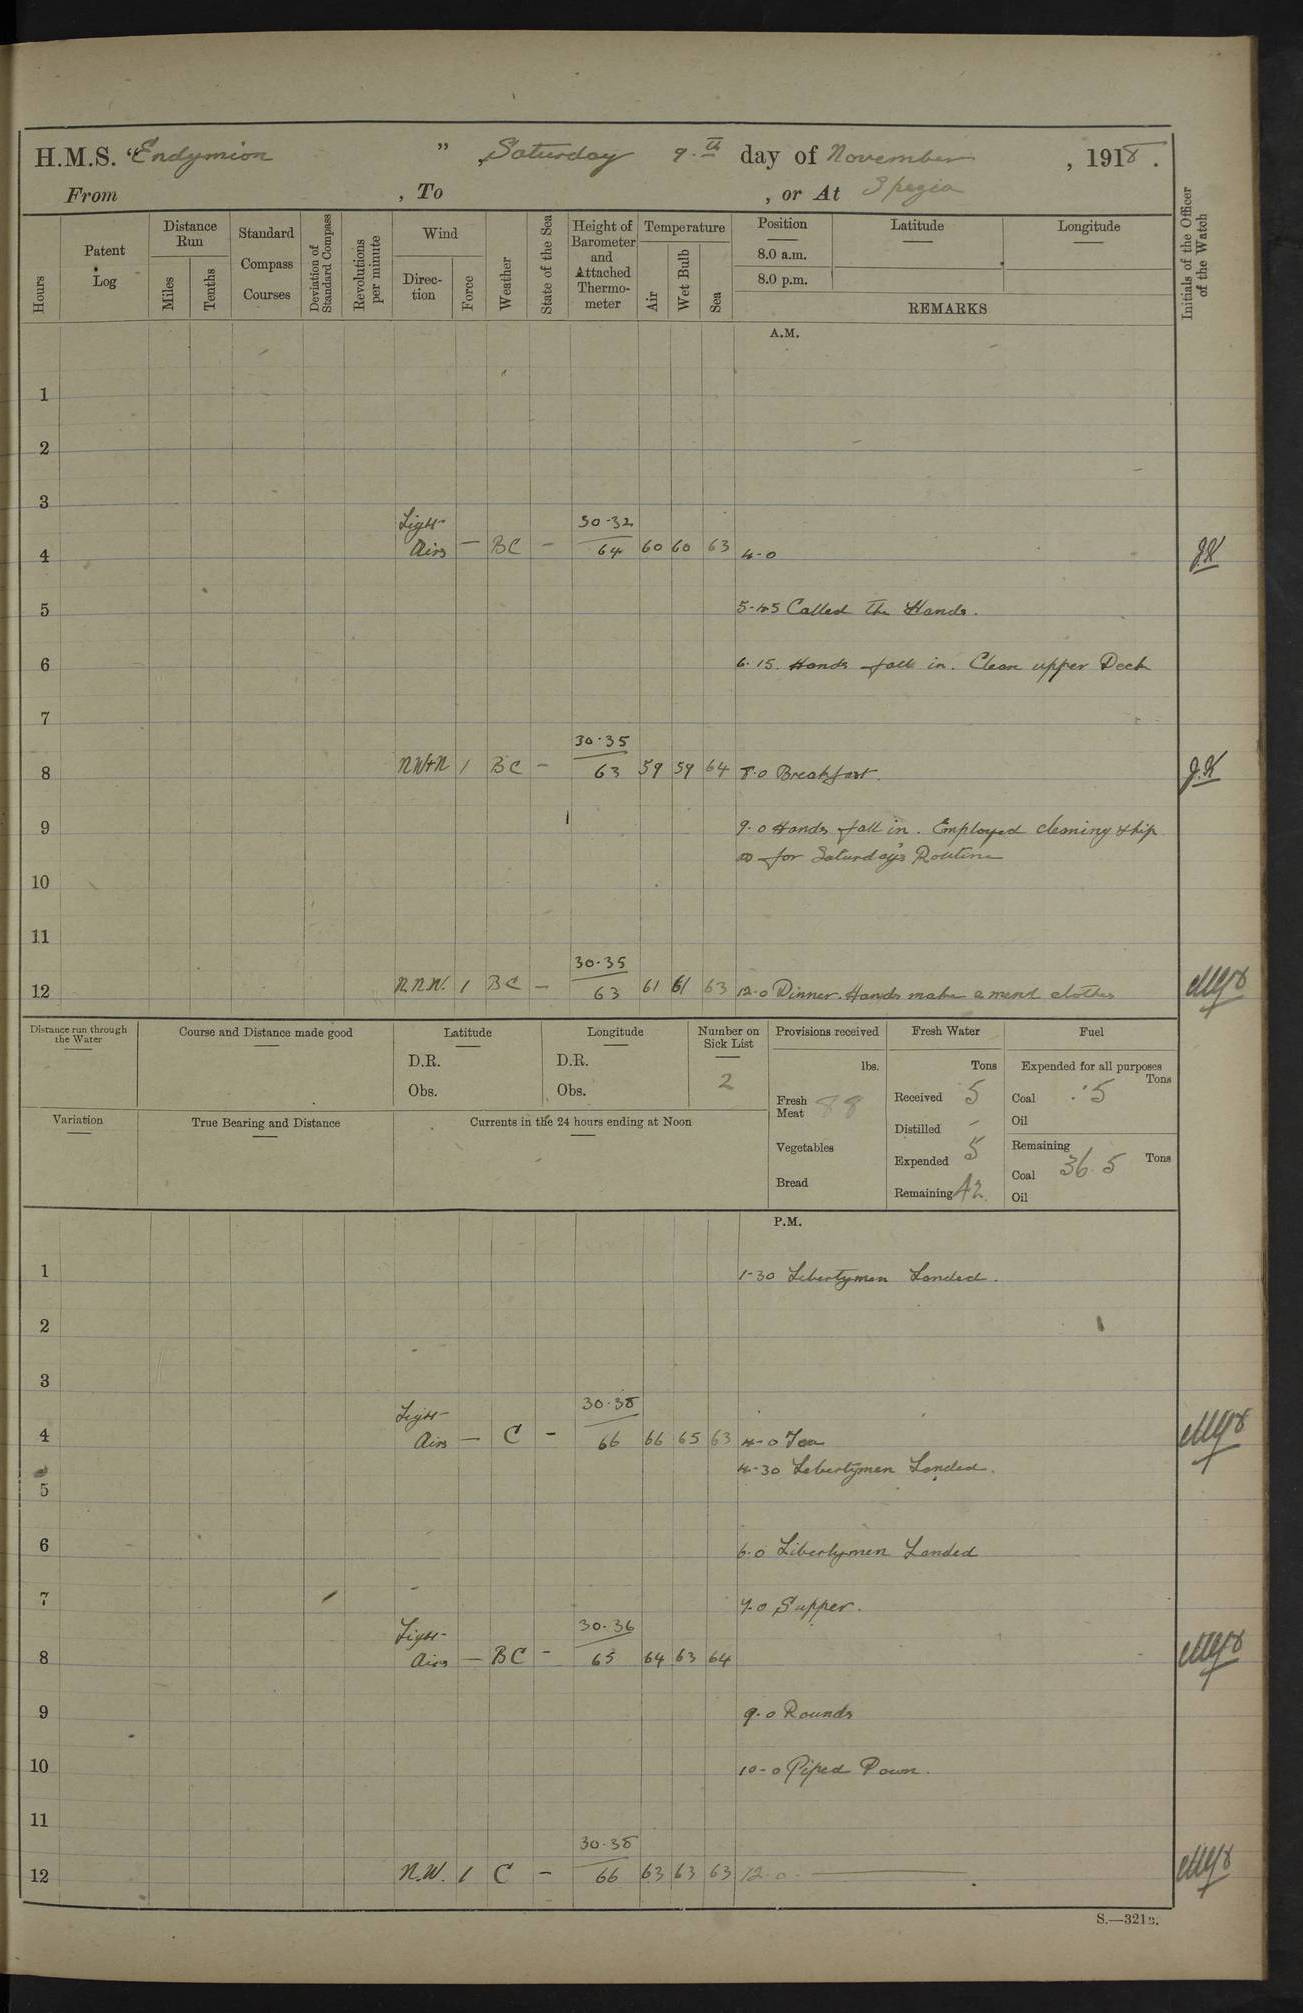 H.M.S. "Endymion" Saturday 9.th day of November, 1918.
From , To , or At Spezia
Hours
Patent Log
Distance Run
Miles
Tenths
Standard Compass Courses
Deviation of Standard Compass
Revolutions per minute
Wind
Direction
Force
Weather
State of the Sea
Height of Barometer and Attached Thermometer
Temperature
Air
Wet Bulb
Sea
Position
8.0 a.m.
8.0 p.m.
Latitude
Longitude
REMARKS
Initials of the Officer of the Watch
A.M.
1
2
3
Light 30.32
4 Airs — BC — 64 60 60 63 4-0 J.K
5 5-45 Called the Hands.
6 6.15. Hands fall in. Clean upper Deck
7
30.35
8 1 BC — 63 59 59 64 8.0 Breakfast. J.K
9 9.0 Hands fall in. Employed cleaning ship
for Saturday's Routine
10
11
30.35
12 N.N.W. 1 BC — 63 61 61 63 12.0 Dinner. Hands make & mend clothes
Distance run through the Water
Course and Distance made good
Latitude
D.R.
Obs.
Longitude
D.R.
Obs.
Number on Sick List
2
Provisions received
lbs.
Fresh Meat 88
Vegetables
Bread
Fresh Water
Tons
Received 5
Distilled -
Expended 5
Remaining 42
Fuel
Expended for all purposes
Tons
Coal .5
Oil
Remaining
Tons
Coal 36.5
Oil
Variation
True Bearing and Distance
Currents in the 24 hours ending at Noon
P.M.
1 1-30 Libertymen Landed.
2
3
Light 30.38
4 Airs — C — 66 66 65 63 4-0 Tea
4-30 Libertymen Landed.
5
6 6.0 Libertymen Landed
7 7.0 Supper.
Light 30.36
8 Airs — BC - 65 64 63 64
9 9.0 Rounds
10 10-0 Piped Down.
11
30.38
12 N.W. 1 C — 66 63 63 63 12.0
S.—321B.